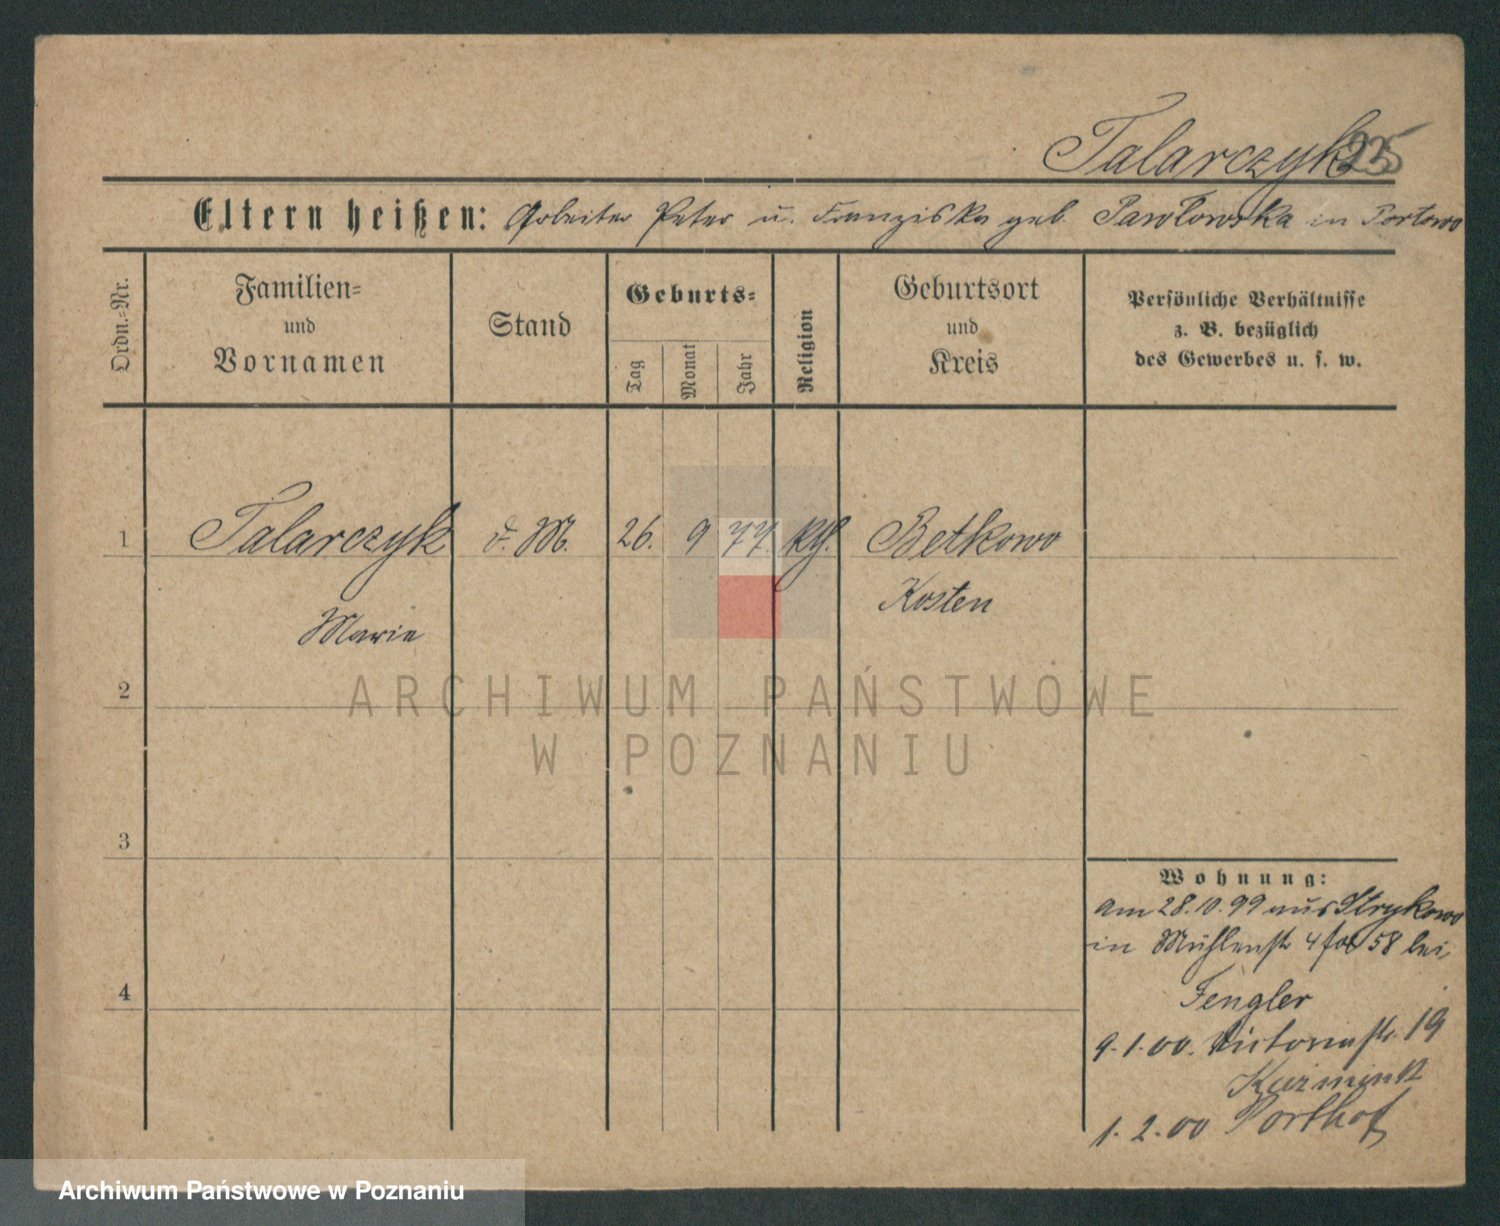 Talarczyk 225
Eltern heißen: Arbeiter Peter u. Franziska geb. Pawłowska in Portowo
Ordn.-Nr.
Familien- und Vornamen
Stand
Geburts-
Tag
Monat
Jahr
Religion
Geburtsort und Kreis
Persönliche Verhältnisse
z. B. bezüglich
des Gewerbes u. s. w.
1 Talarczyk d. M. 26. 9 77. kth. Betkowo
Kosten
Marie
2
3
4
Wohnung:
am 28.10.99 aus Strykowo
in Mühlenstr 4 58 bei
Fengler
9.1.00. Victoriastr. 19
1.2.00
ARCHIWUM PAŃSTWOWE
W POZNANIU
Archiwum Państwowe w Poznaniu